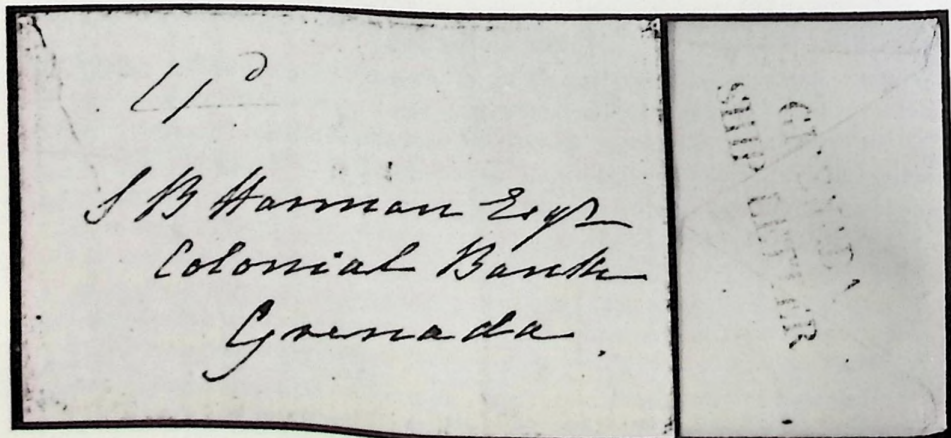 S B Harman Esqr
Colonial Bank
Grenada
GRENADA
SHIP LETTER